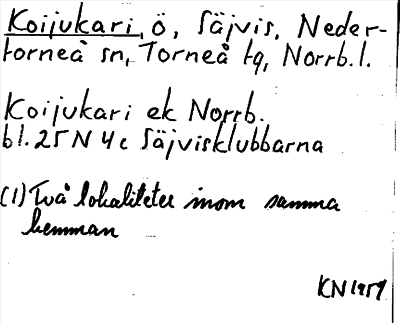 Koijukari, ö, Säjvis, Neder-
torneå sn, Torneå tg, Norrb. l.
Koijukari ek Norrb.
bl. 25 N 4c Säjvisklubbarna
(1) Två lokaliteter inom samma
hemman
KN 1957